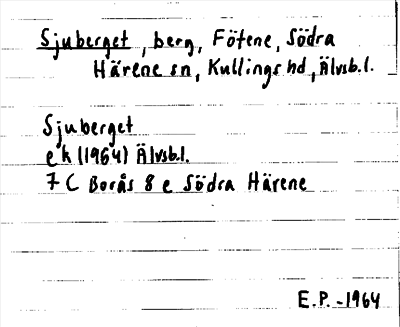 Sjuberget, berg, Fötene, Södra
Härene sn, Kullings hd, Älvsb.l.
Sjuberget
ek (1964) Älvsb.l.
7 C Borås 8 e Södra Härene
E.P. -1964